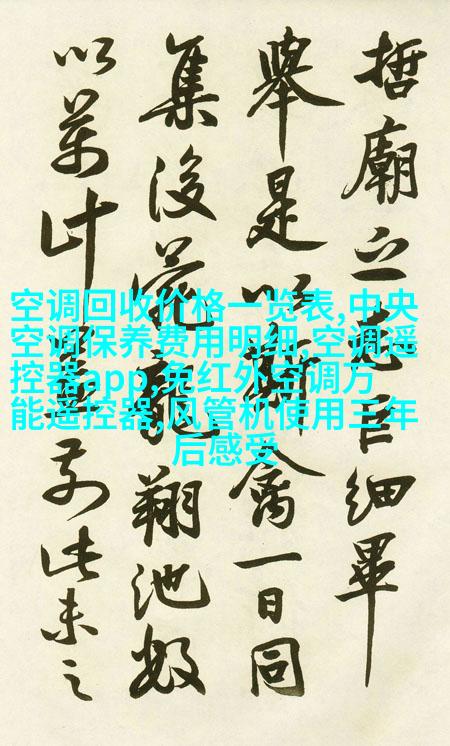 哲廟之臣細畢
舉是以禽一日同
集後苑龍翔池
以萬計前此未之
空调回收价格一览表,中央
空调保养费用明细,空调遥
控器app,免红外空调万
能遥控器,风管机使用三年
后感受